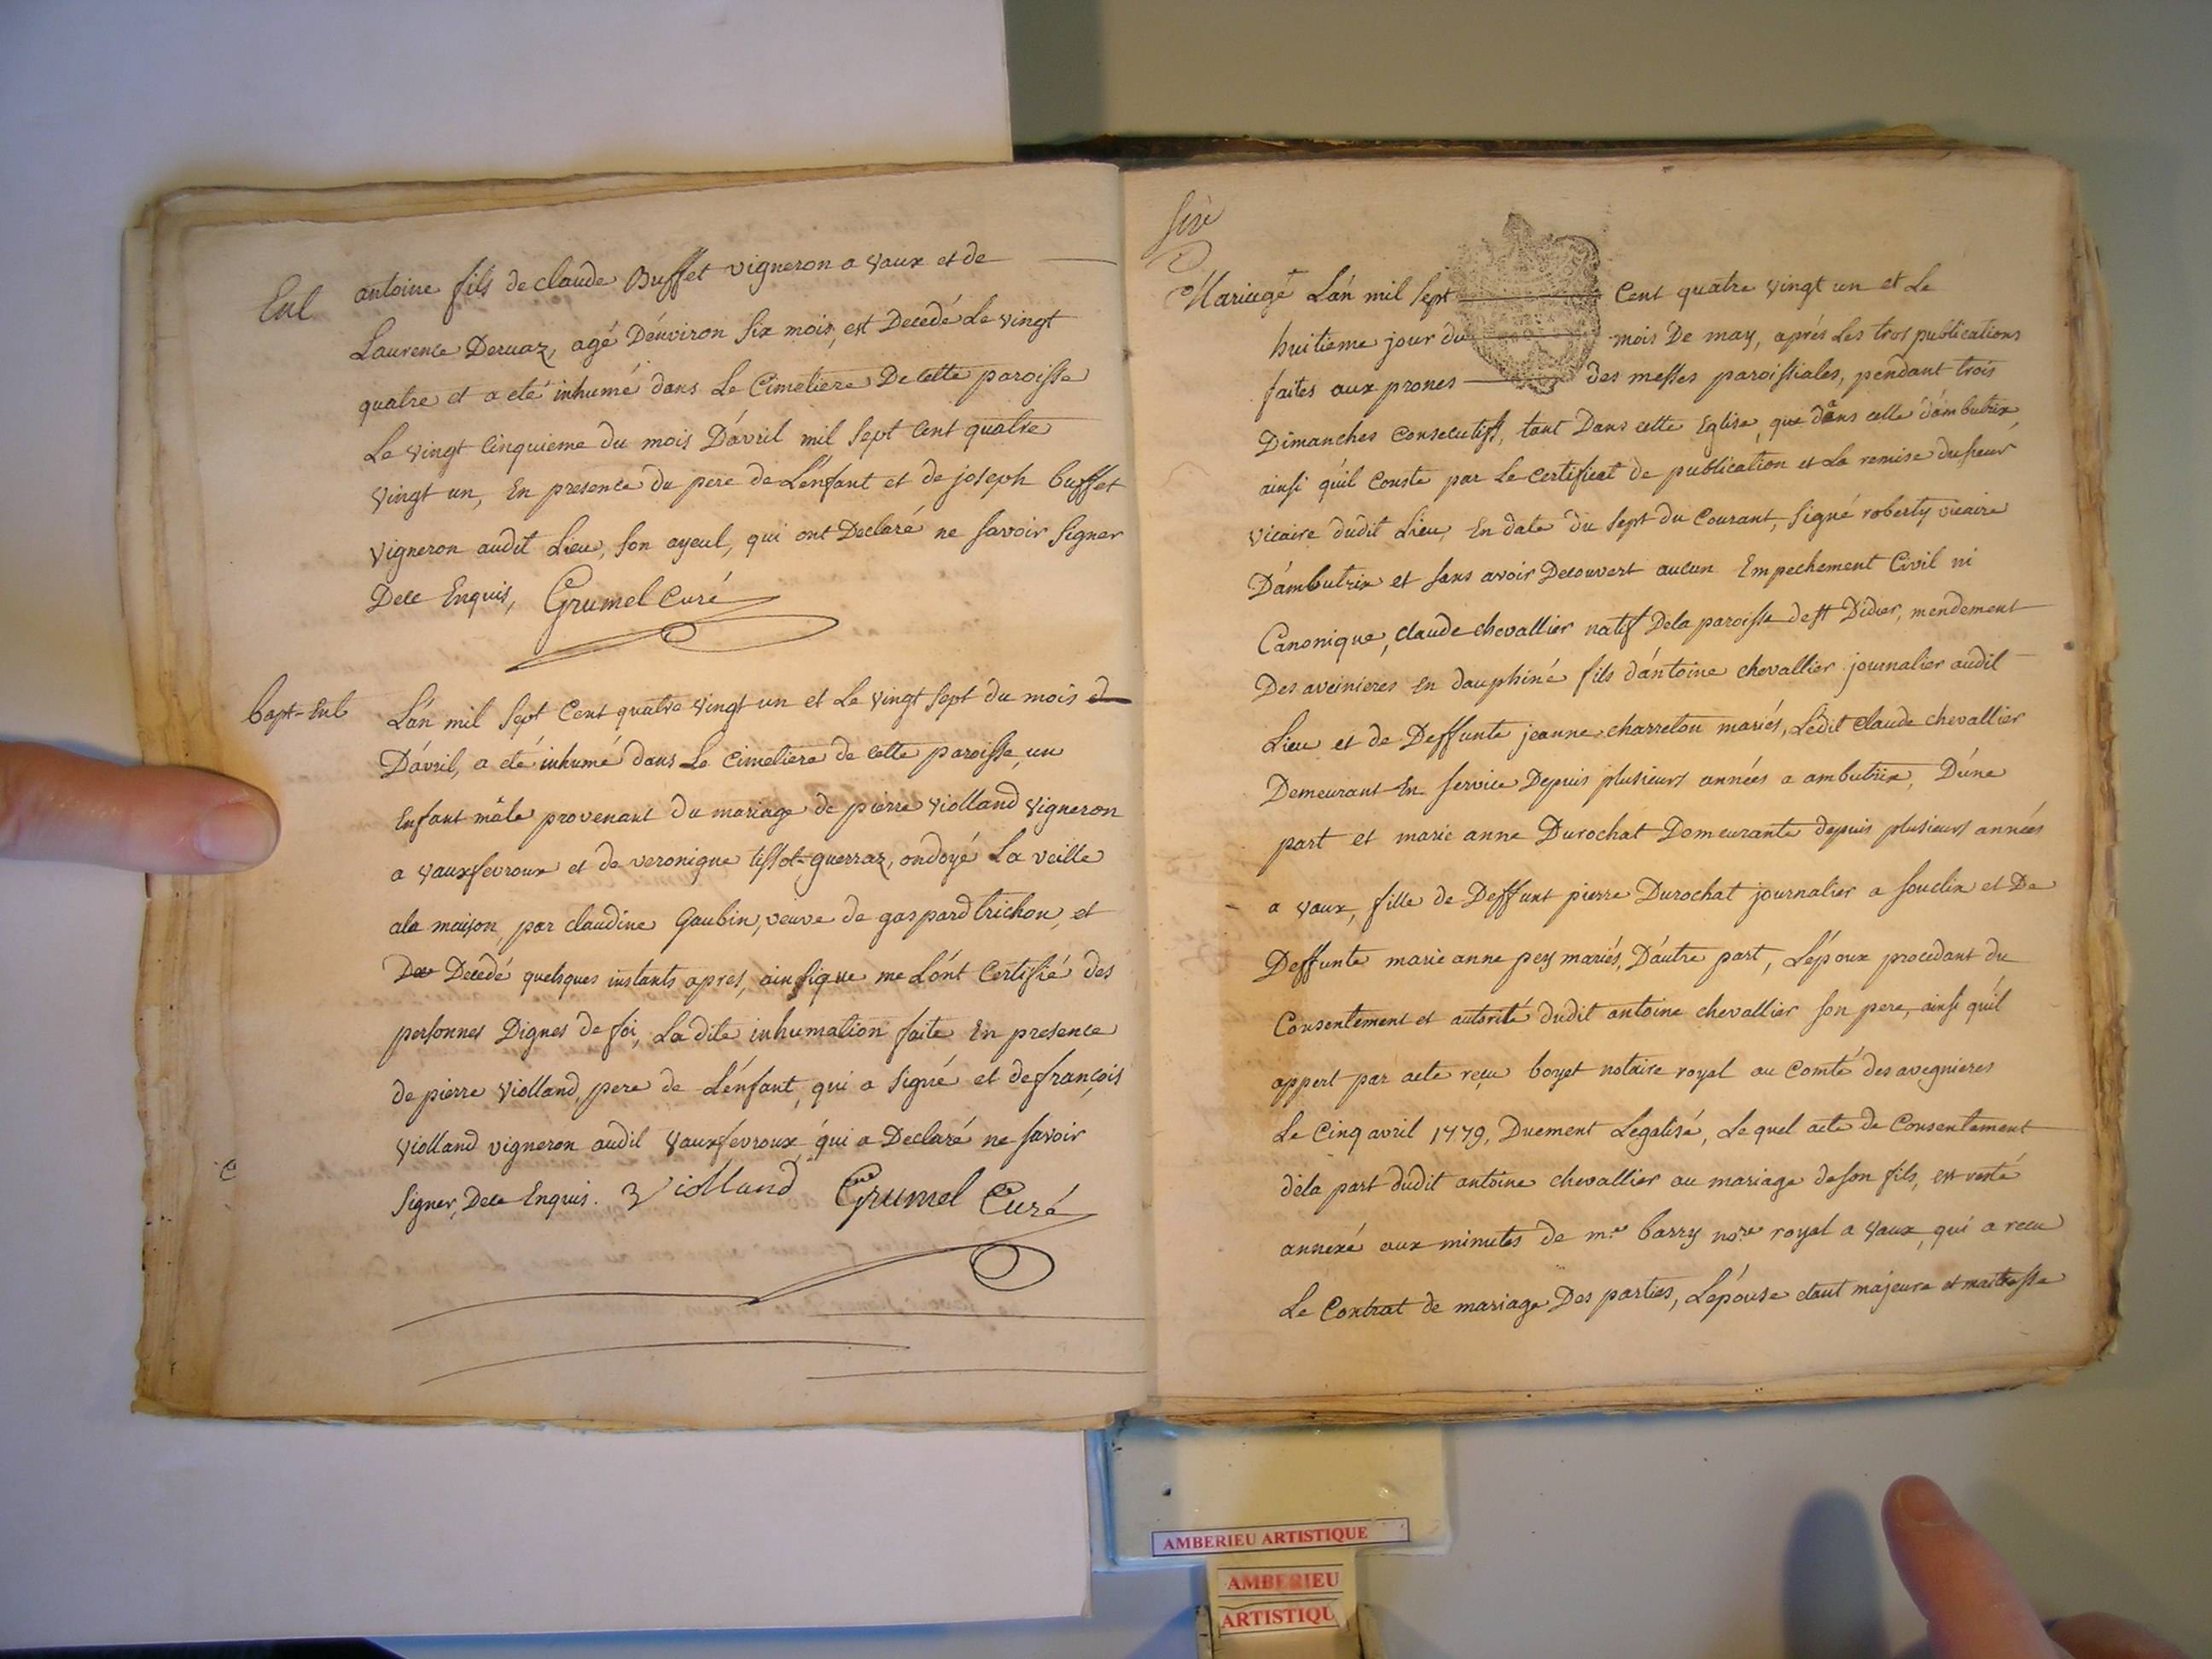 Ent
antoine fils de claude Buffet vigneron a vaux et de
Laurence Deruaz, agé D'environ six mois, est Decedé Le vingt
quatre et a eté inhumé dans Le Cimetiere De cette paroisse
Le vingt cinquieme du mois D'avril mil sept cent quatre
vingt un, En presence du pere de L'enfant et de joseph buffet
vigneron audit Lieu, son ayeul, qui ont Declaré ne savoir signer
De ce Enquis, Grumel curé
bapt-Ent
L'an mil sept Cent quatre vingt un et Le vingt sept du mois d
D'avril, a eté inhumé dans Le Cimetiere de cette paroisse, un
Enfant mâle provenant du mariage de pierre violland vigneron
a vauxfevroux et de veronique tissot-guerraz, ondoyé La veille
a la maison, par claudine Gaubin, veuve de gaspard trichon, et
De Decedé quelques instants apres, ainsi que me L'ont Certifié des
personnes Dignes de foi, La dite inhumation faite En presence
de pierre violland, pere de L'enfant, qui a signé et de françois
violland vigneron audit vauxfevroux, qui a Declaré ne savoir
signer, De ce Enquis. Violland Grumel Curé
Mariage L'an mil sept Cent quatre vingt un et Le
huitieme jour du mois De may, aprés Les trois publications
faites aux prones des messes paroissiales, pendant trois
Dimanches Consecutifs, tant Dans cette Eglise, que dans celle d'ambutrix,
ainsi qu'il Conste par Le Certificat de publication et La remise du sieur
vicaire dudit Lieu, En date du sept du Courant, signé roberty vicaire
D'ambutrix et sans avoir Decouvert aucun Empechement Civil ni
Canonique, claude chevallier natif De la paroisse de st Didier, mendement
Des aveinieres en dauphiné fils d'antoine chevallier journalier audit
Lieu et de Deffunte jeanne charreton mariés, Ledit claude chevallier
Demeurant En service Depuis plusieurs années a ambutrix, D'une
part et marie anne Durochat Demeurante depuis plusieurs années
a vaux, fille de Deffunt pierre Durochat journalier a souclin et De
Deffunte marie anne pey mariés, D'autre part, L'epoux procedant du
Consentement et autorité dudit antoine chevallier son pere, ainsi qu'il
appert par acte reçu boyet notaire royal au Comté des avegnieres
Le Cinq avril 1779, Duement Legalisé, Le quel acte de Consentement
de la part dudit antoine chevallier au mariage de son fils, est resté
annexé aux minutes de m.e barry no.re royal a vaux, qui a recu
Le Contrat de mariage Des parties, L'epouse etant majeure et maitresse
AMBERIEU ARTISTIQUE
AMBERIEU
ARTISTIQU